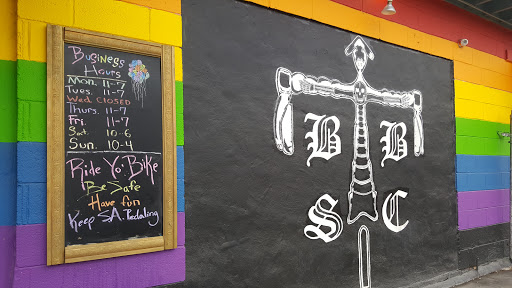 Business
Hours
Mon. 11-7
Tues. 11-7
Wed. CLOSED
Thurs. 11-7
Fri. 11-7
Sat. 10-6
Sun. 10-4
Ride Yo' Bike
Be Safe
Have fun
Keep S.A. Pedaling
B B
S C